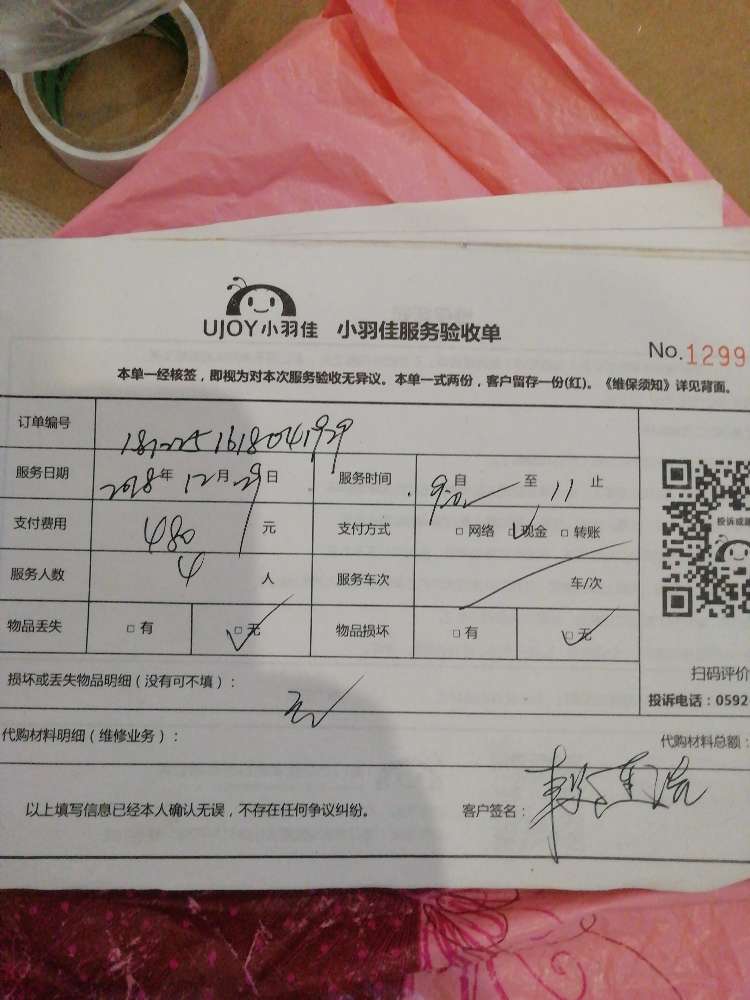 UJOY小羽佳 小羽佳服务验收单
No.1299
本单一经核签，即视为对本次服务验收无异议。本单一式两份，客户留存一份(红)。《维保须知》详见背面。
订单编号 1812251618041929
服务日期 2018年12月29日 服务时间 9:00自 至 11 止
支付费用 480 元 支付方式 □网络 ☑现金 □转账
服务人数 4 人 服务车次 车/次
物品丢失 □有 ☑无 物品损坏 □有 ☑无
投诉或建
扫码评价
损坏或丢失物品明细（没有可不填）： 无
投诉电话：0592
代购材料明细（维修业务）： 代购材料总额：
以上填写信息已经本人确认无误，不存在任何争议纠纷。 客户签名：